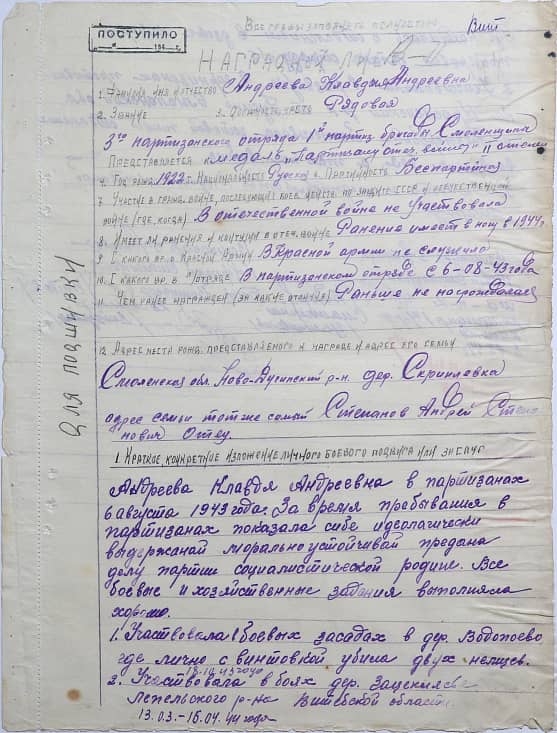 Все графы заполнять полностью
Вит
ПОСТУПИЛО
194 г.
НАГРАДНОЙ ЛИСТ
1. Фамилия имя и отчество Андреева Клавдия Андреевна
2. Звание 3. Должность, часть Рядовая
3го партизанского отряда 1й партиз бригады, Смоленщина
Представляется к медаль "Партизану отеч. войны" II степени
4. Год рожд. 1922 г. Национальность Русская 6. Партийность Беспартийная
7. Участие в гражд. войне, последующих боев. действ. по защите СССР и отечественной
войне (где, когда) В отечественной война не участвовала
8. Имеет ли ранения и контузии в отеч. войне Ранение имеет в ногу в 1944 г
9. С какого вр. в Красной Армии В Красной армии не служила
10. С какого вр. в п/отряде В партизанском отряде с 6-08-43 года
11. Чем ранее награжден (за какие отличия) Раньше не награждалась
12. Адрес места рожд. представляемого к награде и адрес его семьи
Смоленская обл. Ново-Дугинский р-н. дер. Скрипле
адрес семьи тот же самый Степанов Андрей Степа
нович Отец.
Для подшивки
1. Краткое, конкретное изложение личного боевого подвига или заслуг
Андреева Клавдя Андреевна в партизанах
6 августа 1943 года. За время пребывания в
партизанах показала себе идеологически
выдержаной морально устойчивай предана
делу партии социалистической родине. Все
боевые и хозяйственные задания выполняла
хорошо.
1. Участвовала в боевых засадах в дер. Водопоево
где лично с винтовкой убила двух немцев.
2. Участвовала в боях дер.
Лепельского р-на Витебской области
13.03.-16.04.44 года